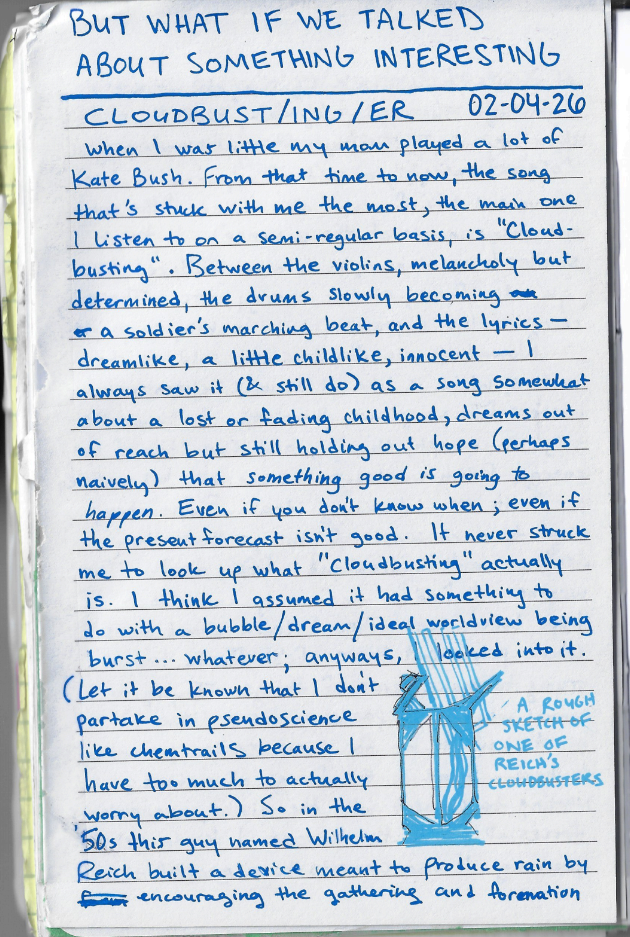 BUT WHAT IF WE TALKED
ABOUT SOMETHING INTERESTING
CLOUDBUST/ING/ER 02-04-26
When I was little my mom played a lot of
Kate Bush. From that time to now, the song
that's stuck with me the most, the main one
I listen to on a semi-regular basis, is "Cloud-
busting". Between the violins, melancholy but
determined, the drums slowly becoming
a soldier's marching beat, and the lyrics —
dreamlike, a little childlike, innocent — I
always saw it (& still do) as a song somewhat
about a lost or fading childhood, dreams out
of reach but still holding out hope (perhaps
naively) that something good is going to
happen. Even if you don't know when; even if
the present forecast isn't good. It never struck
me to look up what "Cloudbusting" actually
is. I think I assumed it had something to
do with a bubble/dream/ideal worldview being
burst... whatever; anyways, I looked into it.
(Let it be known that I don't
partake in pseudoscience
like chemtrails because I
have too much to actually
worry about.) So in the
'50s this guy named Wilhelm
Reich built a device meant to produce rain by
encouraging the gathering and formation
A ROUGH
SKETCH OF
ONE OF
REICH'S
CLOUDBUSTERS